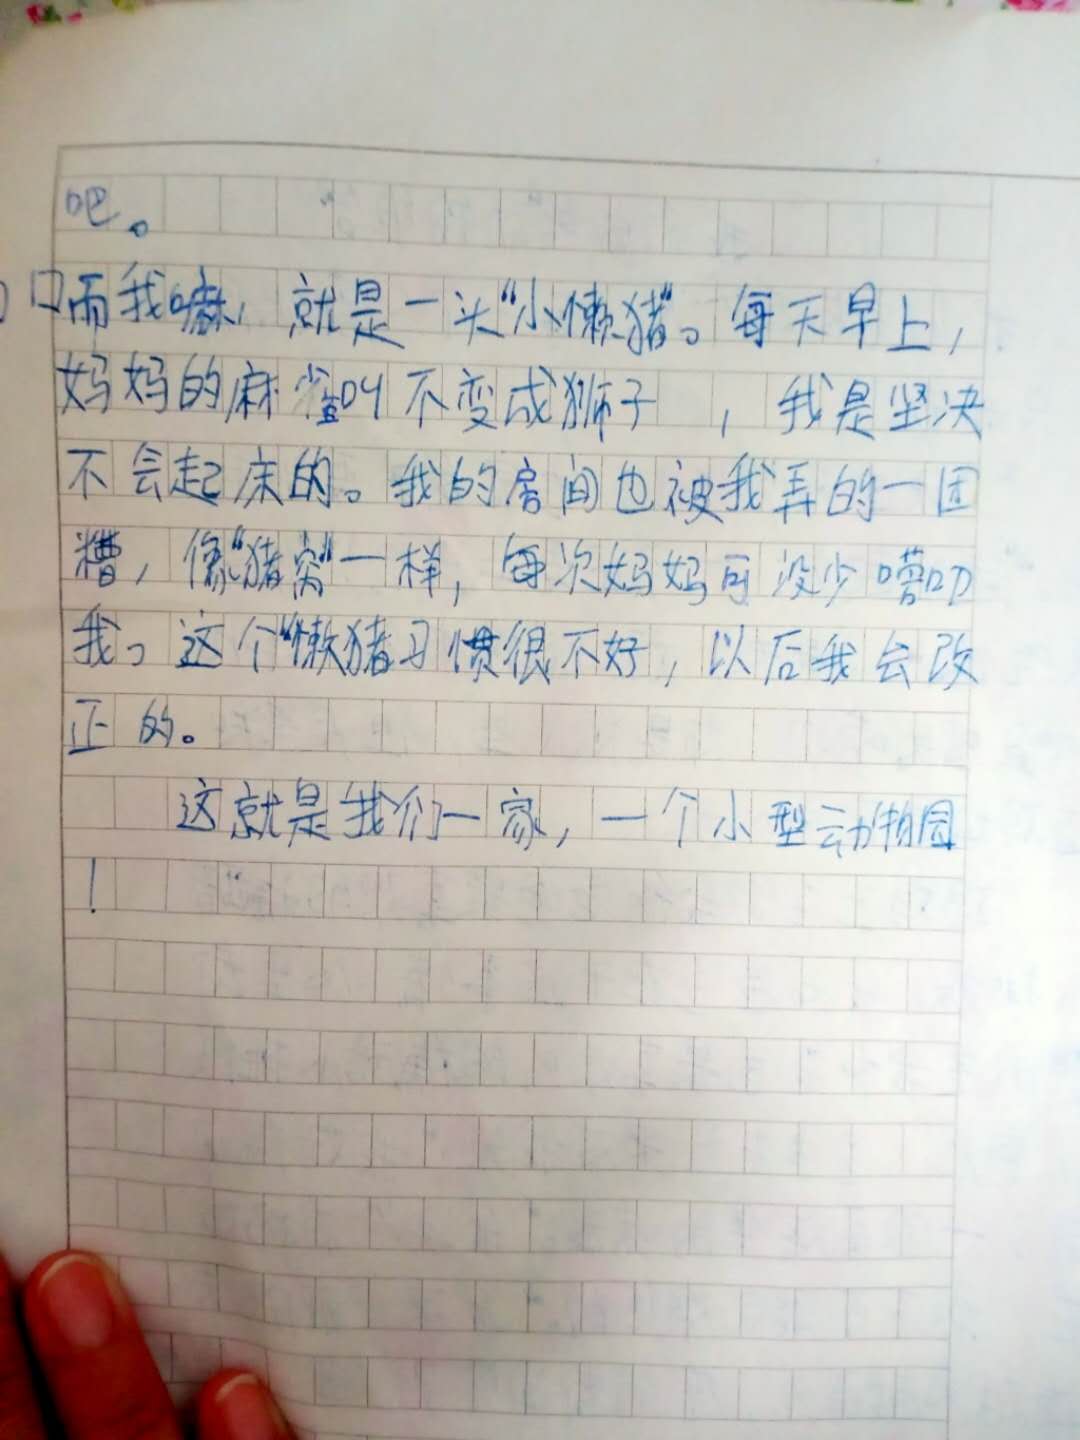 吧。
而我嘛，就是一头“小懒猪”。每天早上，
妈妈的麻雀叫不变成狮子，我是坚决
不会起床的。我的房间也被我弄的一团
糟，像“猪窝”一样，每次妈妈可没少唠叨
我。这个“懒猪习惯很不好，以后我会改
正的。
这就是我们一家，一个小型动物园
！